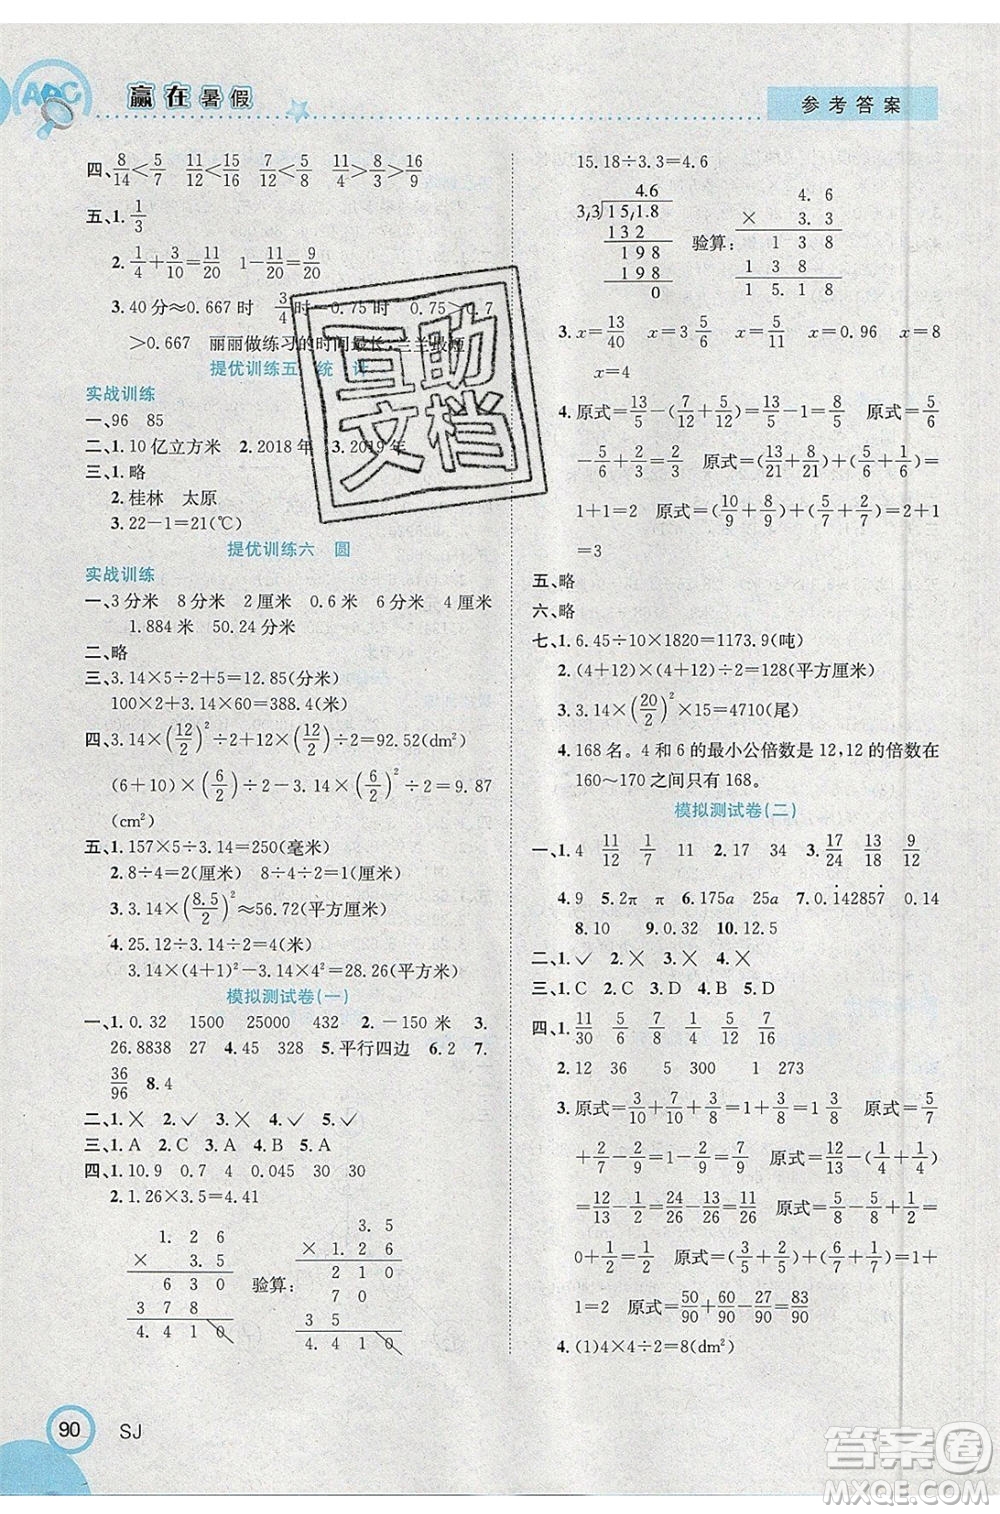 ABC
赢在暑假
参考答案
四、8/14<5/8 11/12<15/16 7/12<5/8 11/9>8/3>16/9
五、1. 1/3
2. 1/4+3/10=11/20 1-11/20=9/20
3. 40分≈0.667时 3/4时=0.75时 0.75>0.7
>0.667 丽丽做练习的时间最长,兰兰最短
提优训练五 统 计
实战训练
一、96 85
二、1. 10亿立方米 2. 2018年 3. 2019年
三、1. 略
2. 桂林 太原
3. 22-1=21(℃)
提优训练六 圆
实战训练
一、3分米 8分米 2厘米 0.6米 6分米 4厘米
1.884米 50.24分米
二、略
三、3.14×5÷2+5=12.85(分米)
100×2+3.14×60=388.4(米)
四、3.14×(12/2)²÷2+12×(12/2)÷2=92.52(dm²)
(6+10)×(6/2)÷2-3.14×(6/2)²÷2=9.87
(cm²)
五、1. 157×5÷3.14=250(毫米)
2. 8÷4=2(厘米) 8÷4÷2=1(厘米)
3. 3.14×(8.5/2)²≈56.72(平方厘米)
4. 25.12÷3.14÷2=4(米)
3.14×(4+1)²-3.14×4²=28.26(平方米)
模拟测试卷(一)
一、1. 0.32 1500 25000 432 2. -150米 3.
26.8838 27 4. 45 328 5. 平行四边 6. 2 7.
36/96 8. 4
二、1. × 2. ✓ 3. ✓ 4. ✓ 5. ✓
三、1. A 2. C 3. A 4. B 5. A
四、1. 10.9 0.7 4 0.045 30 20
2. 1.26×3.5=4.41
1. 2 6
× 3. 5
6 3 0
3 7 8
4. 4 1 0
验算:
3. 5
× 1. 2 6
2 1 0
7 0
3 5
4. 4 1 0
90 SJ
15.18÷3.3=4.6
4.6
3,3)15,1.8
132
198
198
0
验算:
4. 6
× 3. 3
1 3 8
1 3 8
1 5. 1 8
3. x=13/40 x=3 5/6 x=5/12 x=0.96 x=8
x=4
4. 原式=13/5-(7/12+5/12)=13/5-1=8/5 原式=5/6
-5/6+6/7=6/7 原式=(13/21+8/21)+(5/6+1/6)=
1+1=2 原式=(2 9/10+1/10)+(8/9+1/9)=
原式=(9/10+10/9)
=3
五、略
六、略
七、1. 6.45÷10×1820=1173.9(吨)
2. (4+12)×(4+12)÷2=128(平方厘米)
3. 3.14×(20/2)²×15=4710(尾)
4. 168名。4和6的最小公倍数是12,12的倍数在
160~170之间只有168。
模拟测试卷(二)
一、1. 4 11/12 1/7 11 2. 17 34 3. 17/24 18/13
4. 9 5. 2π π 6. 175a 25a 7. 0.142857 0.14
8. 10 9. 0.32 10. 12.5
二、1. ✓ 2. × 3. × 4. ×
三、1. C 2. D 3. C 4. C
四、1. 11/30 5/6 4/11 1/12 5/12 5/7
2. 12 36 5 300 1 273
3. 原式=3/10+7/10+3/8=1 3/8 原式=5/7
-5/7+2/9=2/9 原式=12/13-(1/4+1/4)
=12/13-1/2=24/26-13/26=11/26 原式=5/8-5/8+1/2+1/2=
0+1/2+1/2=1
1+1=2 原式=50/90+60/90-27/90=83/90
4. (1)4×4÷2=8(dm²)
互助文档
答案圈
MXQE.COM